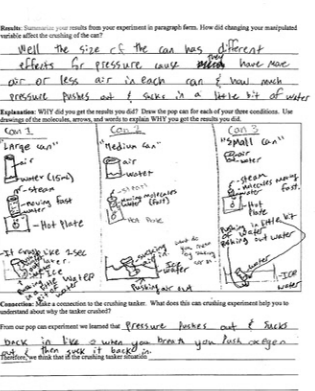 Results: Summarize your results from your experiment in paragraph form. How did changing your manipulated
variable affect the crushing of the can?
Well the size of the can has different
effects for pressure cause they have more
air or less air in each can & how much
pressure pushes out & sucks in a little bit of water
Explanation: WHY did you get the results you did? Draw the pop can for each of your three conditions. Use
drawings of the molecules, arrows, and words to explain WHY you got the results you did.
Can 1
"Large can"
air
water (15ml)
steam
moving fast
water
Hot Plate
It crush like 1-sec
later.
Ice
water
Can 2
"Medium can"
air
water
steam
moving molecules
water (fast)
Hot Plate
Ice
water
Pushing air out
Can 3
"Small can"
air
water
steam
molecules moving
fast.
water
Hot
Plate
Pushing in little bit
of water
Pushing out water
water
ICE
water
Connection: Make a connection to the crushing tanker. What does this can crushing experiment help you to
understand about why the tanker crushed?
From our pop can experiment we learned that Pressure Pushes out & Sucks
back in like when you breath you Push oxegen
out & then suck it back in.
Therefore, we think that in the crushing tanker situation